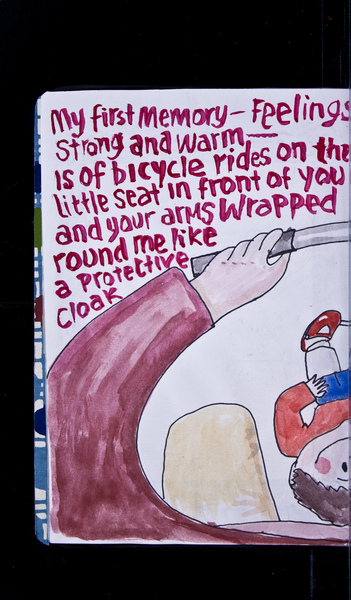 My first Memory - Feelings
Strong and warm
is of bicycle rides on the
little seat in front of you
and your arms wrapped
round me like
a protektive
cloak